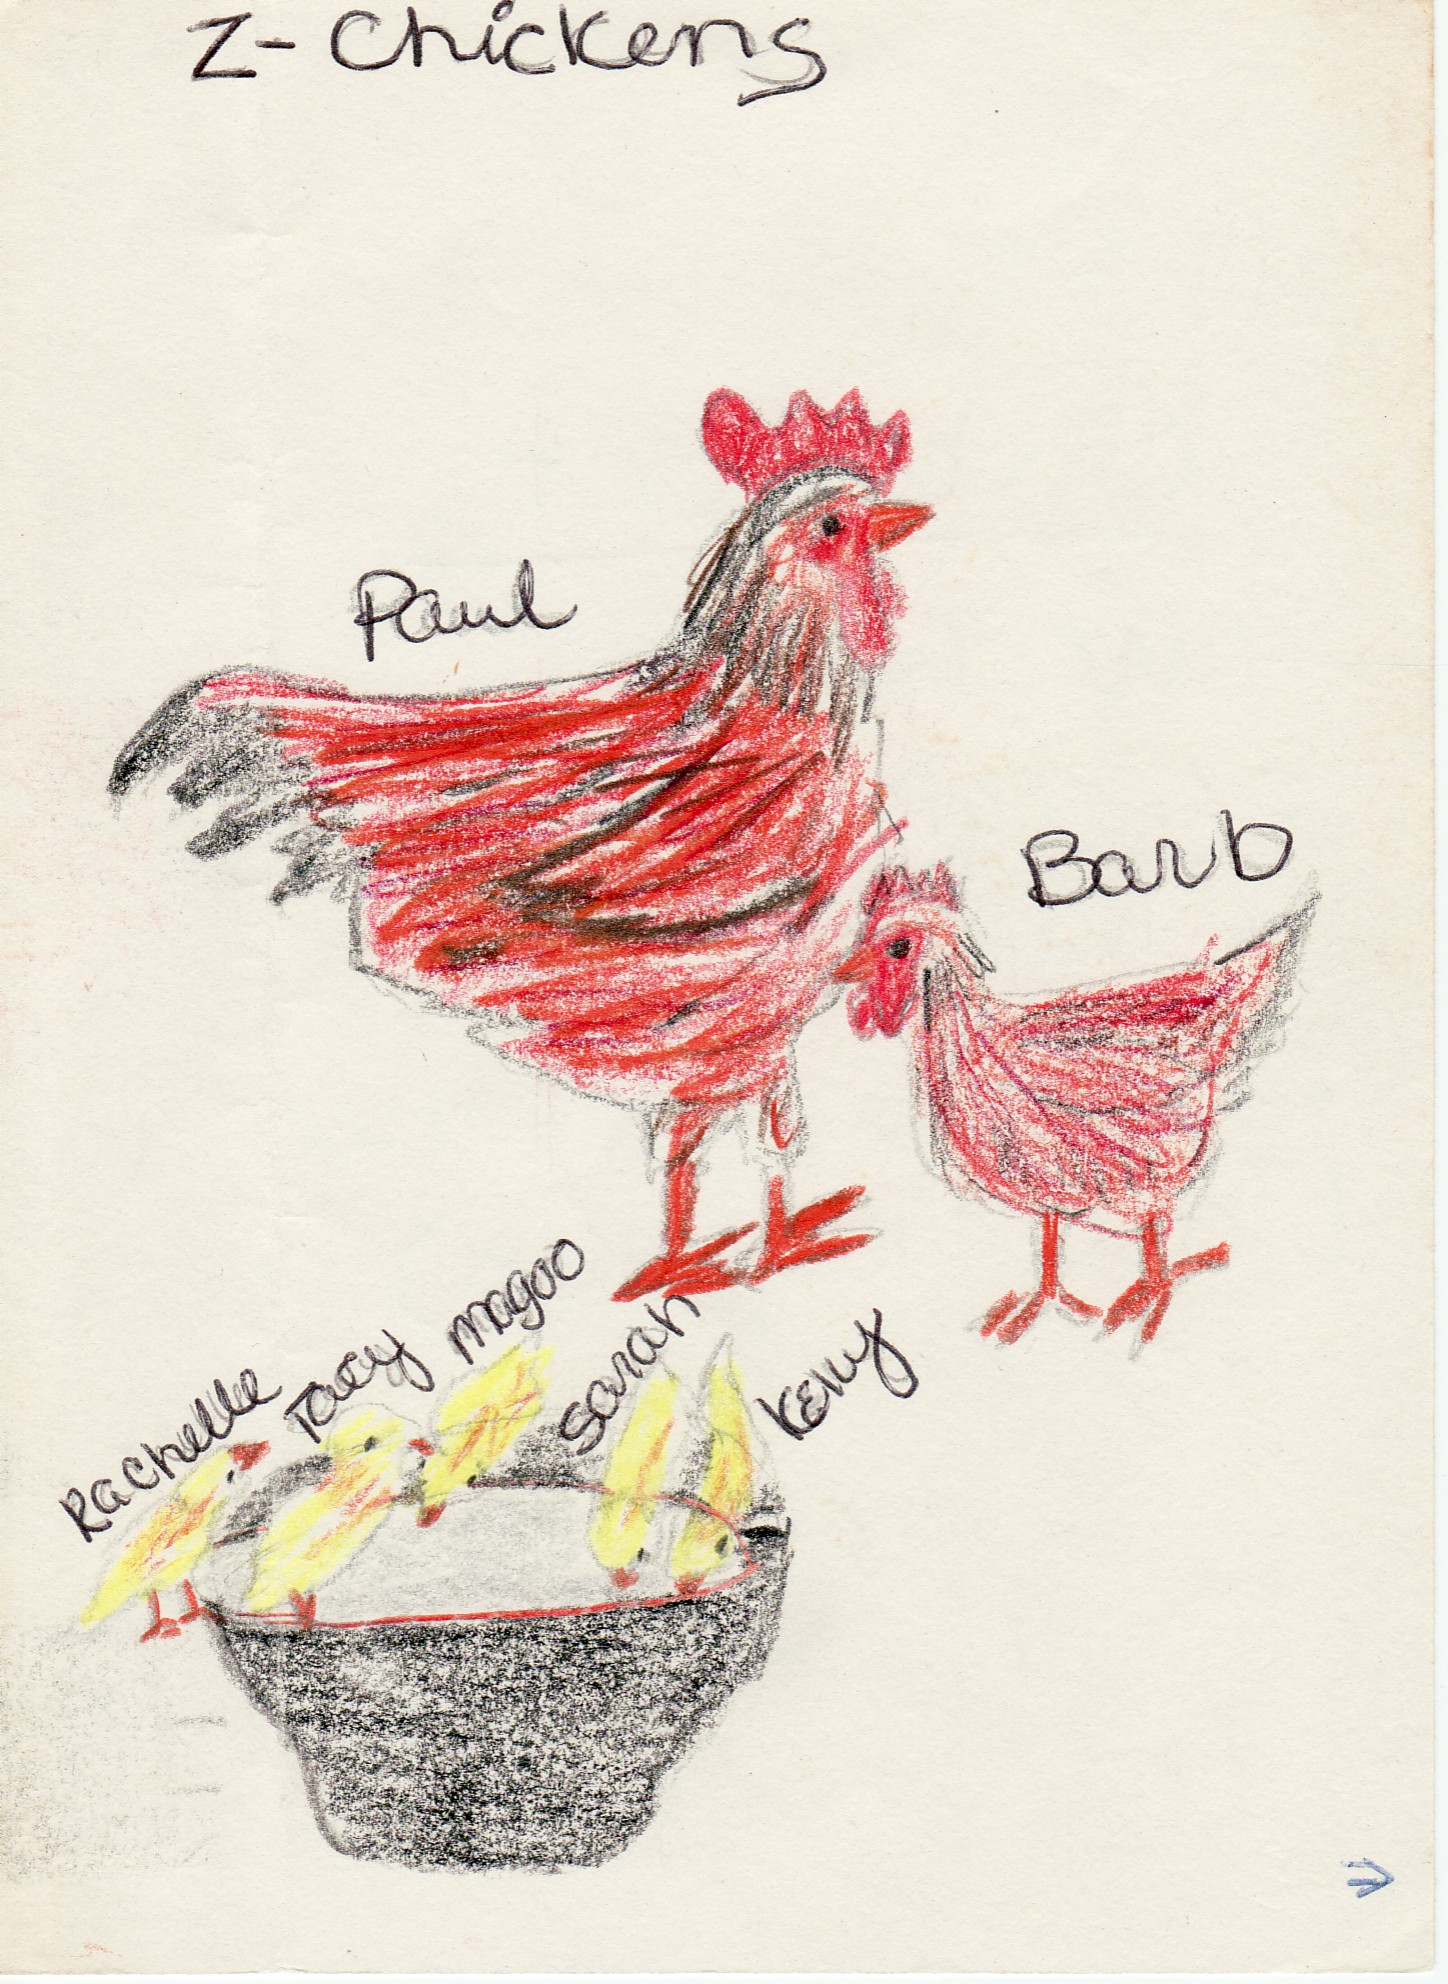 Z-Chickens
Paul
Barb
Rachelle
Tacy
magoo
Sarah
Kelly